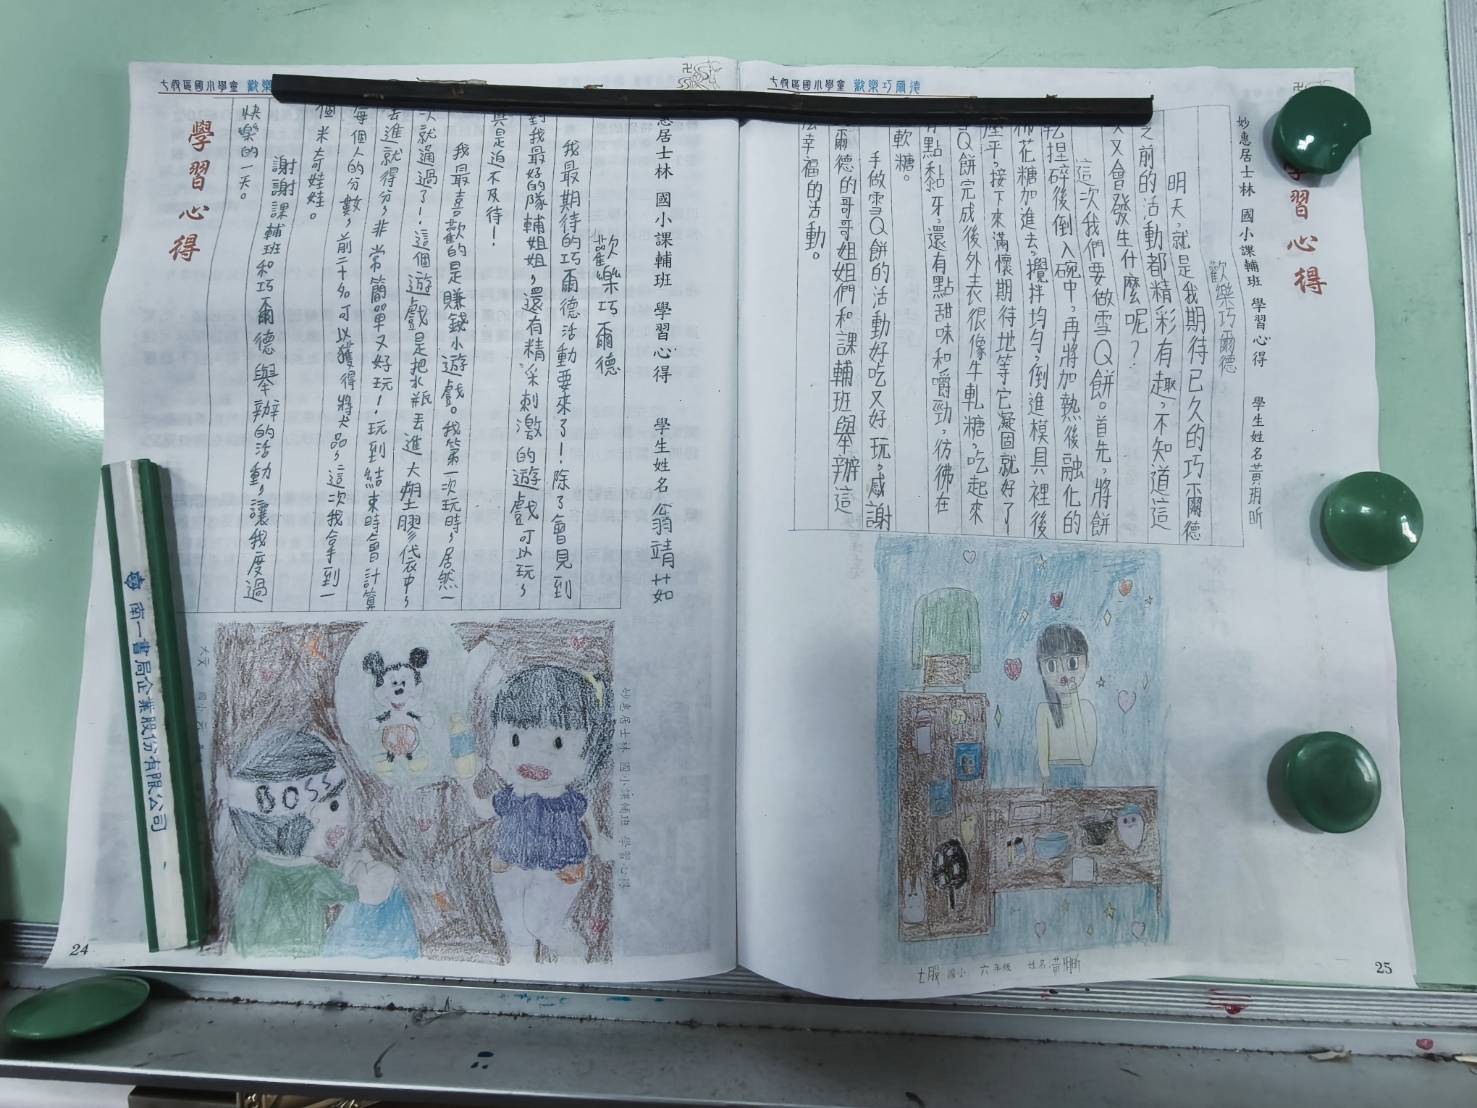 七股區國小學童 歡樂巧爾德
學習心得
妙惠居士林 國小課輔班 學習心得 學生姓名黃玥昕
歡樂巧爾德
明天,就是我期待已久的巧爾德
之前的活動都精彩有趣,不知道這
又會發生什麼呢?
這次我們要做雪Q餅。首先,將餅
乾捏碎後倒入碗中,再將加熱後融化的
棉花糖加進去,攪拌均勻,倒進模具裡後
壓平,接下來滿懷期待地等它凝固就好了
Q餅完成後外表很像牛軋糖,吃起來
有點黏牙,還有點甜味和嚼勁,彷彿在
軟糖。
手做雪Q餅的活動好吃又好玩,感謝
爾德的哥哥姐姐們和課輔班舉辦這
幸福的活動。
七股 國小 六年級 姓名
25
七股區國小學童 歡樂
惠居士林 國小課輔班 學習心得 學生姓名 翁靖茹
歡樂巧爾德
我最期待的巧爾德活動要來了!除了會見到
對我最好的隊輔姐姐,還有精采刺激的遊戲可以玩,
真是迫不及待!
我最喜歡的是賺錢小遊戲。我第一次玩時,居然一
次就通過了!這個遊戲是把水瓶丟進大塑膠袋中,
丟進就得分,非常簡單又好玩!玩到結束時會計算
每個人的分數,前二十名可以獲得獎品,這次我拿到一
個米奇娃娃。
謝謝課輔班和巧爾德舉辦的活動,讓我度過
快樂的一天。
學習心得
BOSS
妙惠居士林 國小課輔班 學習心得
24
南一書局企業股份有限公司